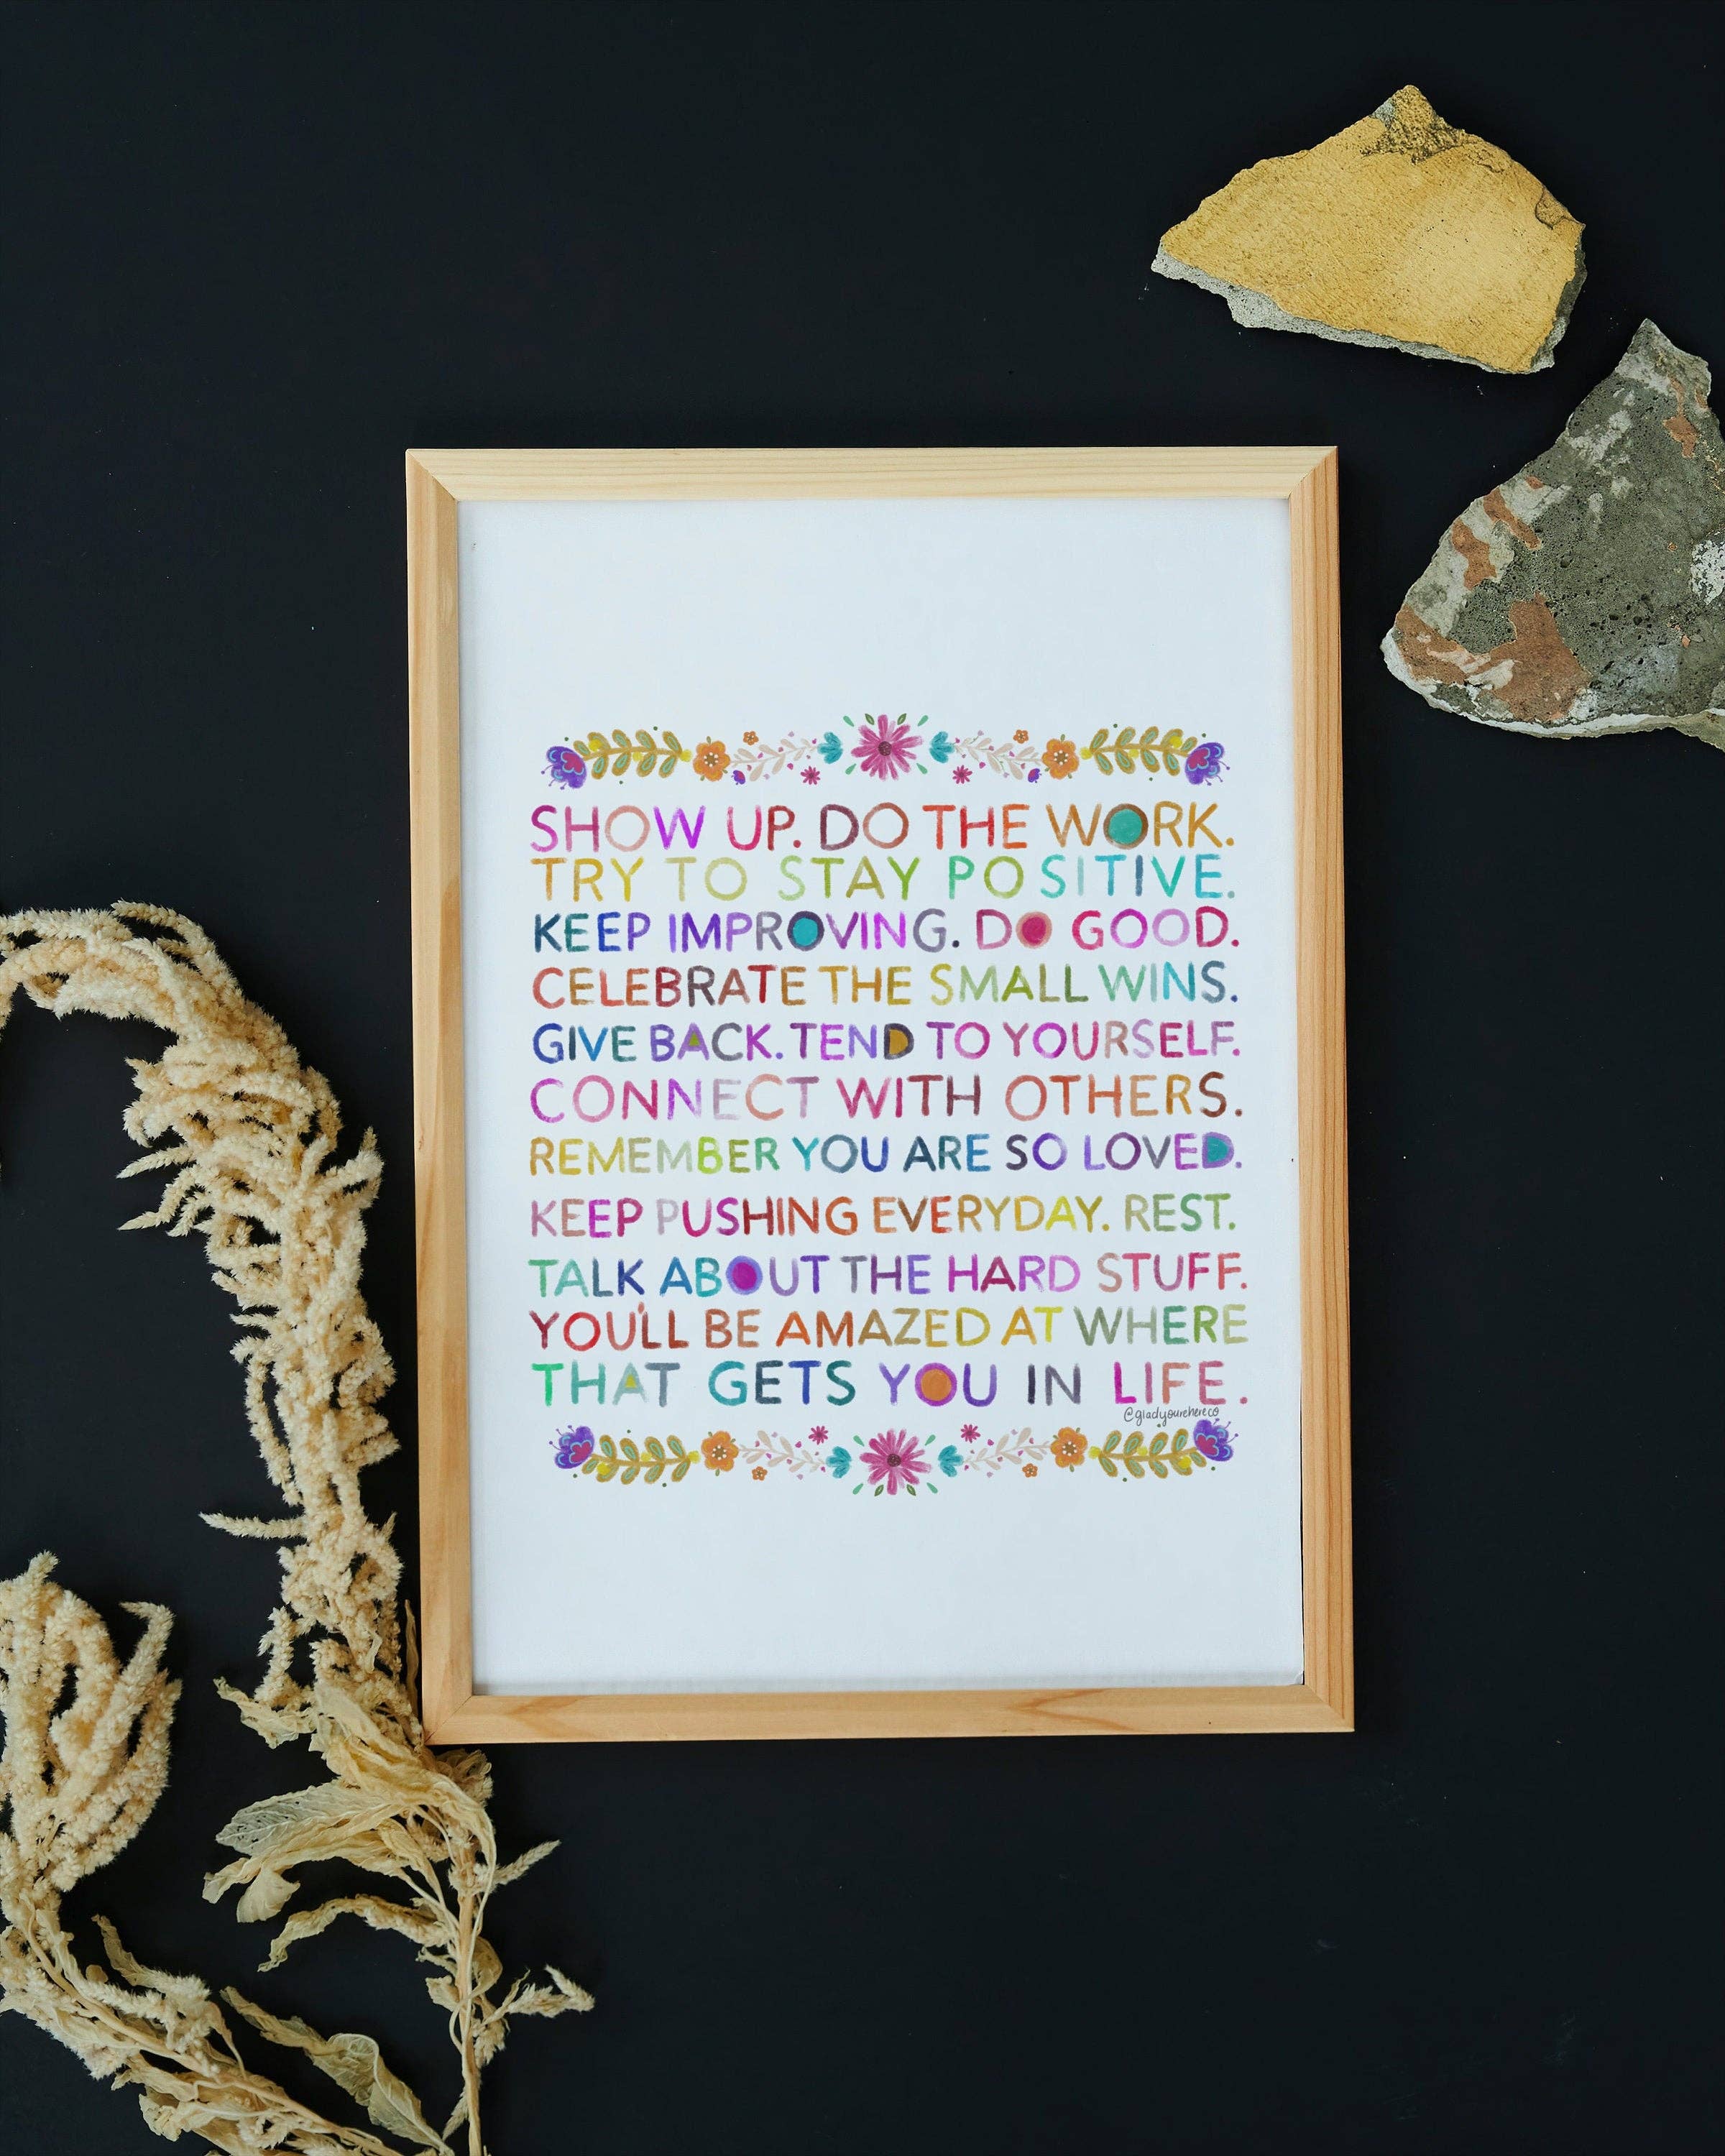 SHOW UP. DO THE WORK.
TRY TO STAY POSITIVE.
KEEP IMPROVING. DO GOOD.
CELEBRATE THE SMALL WINS.
GIVE BACK. TEND TO YOURSELF.
CONNECT WITH OTHERS.
REMEMBER YOU ARE SO LOVED.
KEEP PUSHING EVERYDAY. REST.
TALK ABOUT THE HARD STUFF.
YOU'LL BE AMAZED AT WHERE
THAT GETS YOU IN LIFE.
@gladyourehereco